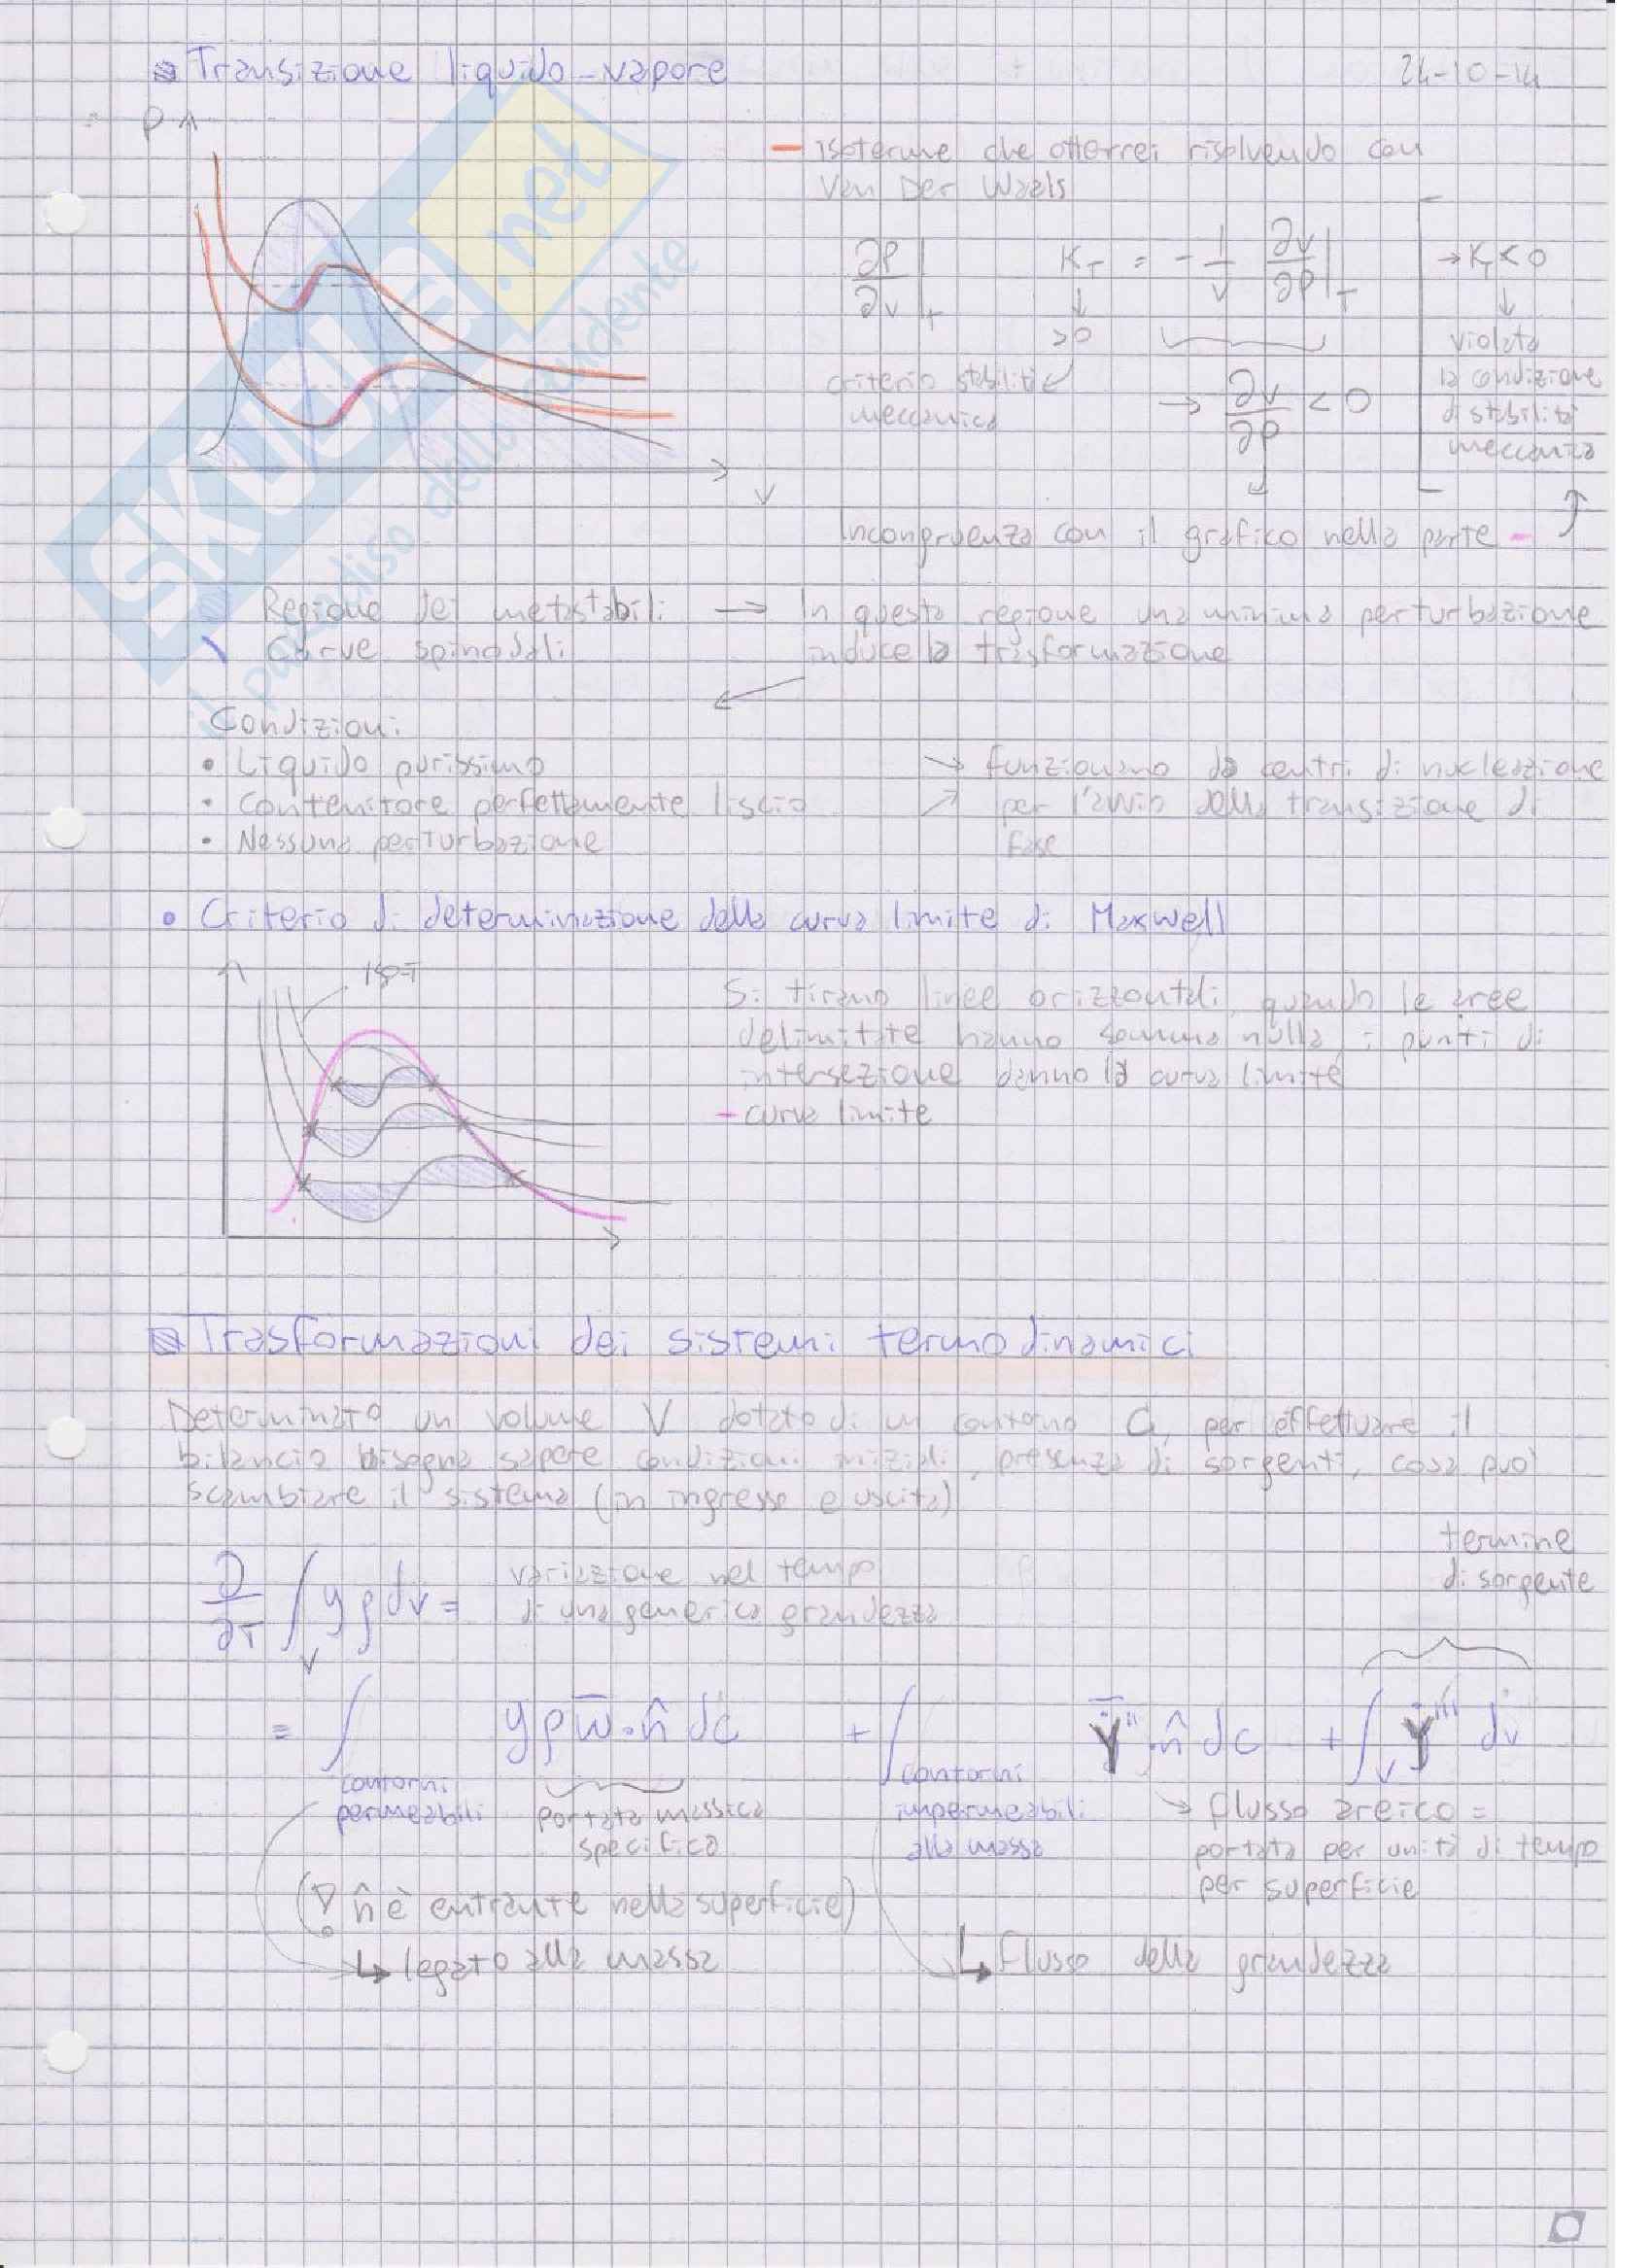 Transizione liquido-vapore
24-10-14
P
isoterme che otterrei risolvendo con
Van Der Waals
∂P/∂v |T
K_T = - 1/v ∂v/∂P |T
→ K_T < 0
>0
violata
criterio stabilità
la condizione
meccanica
→ ∂v/∂P < 0
di stabilità
meccanica
v
Incongruenza con il grafico nella parte -
Regione dei metastabili → In questa regione una minima perturbazione
Curve spinodali
induce la trasformazione
Condizioni
• Liquido purissimo
→ funzionano da centri di nucleazione
• Contenitore perfettamente liscio
per l'avvio della transizione di
• Nessuna perturbazione
fase
• Criterio di determinazione della curva limite di Maxwell
iso-T
Si tirano linee orizzontali, quando le aree
delimitate hanno somma nulla i punti di
intersezione danno la curva limite
- curva limite
Trasformazioni dei sistemi termodinamici
Determinato un volume V dotato di un contorno C, per effettuare il
bilancio bisogna sapere condizioni iniziali, presenza di sorgenti, cosa può
scambiare il sistema (in ingresso e uscita)
termine
di sorgente
∂/∂τ ∫_V y ρ dv =
variazione nel tempo
di una generica grandezza
= ∫ yρ w̄·n̂ dc + ∫ Ẏ̄''·n̂ dc + ∫_V Ẏ''' dv
contorni
permeabili
portata massica
specifica
contorni
impermeabili
alla massa
→ flusso areico =
portata per unità di tempo
per superficie
(n̂ è entrante nella superficie)
↳ legato alla massa
↳ flusso della grandezza
SKUOLA.net
il paradiso dello studente